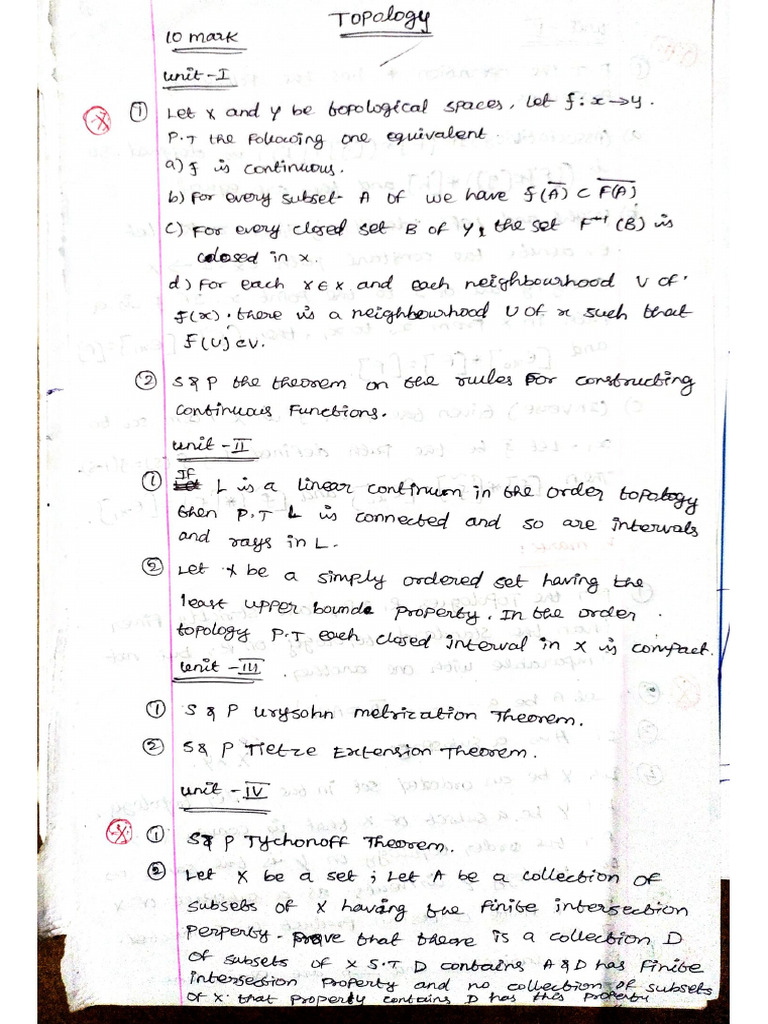 Topology
10 mark
Unit - I
① Let X and Y be topological spaces, Let f: x → y.
P.T the following one equivalent.
a) f is continuous.
b) For every subset A of we have f(A̅) ⊂ \overline{F(A)}
c) For every closed set B of Y, the set F⁻¹(B) is
closed in x.
d) For each x ∈ x and each neighbourhood V of
f(x). there is a neighbourhood U of x such that
f(U) ⊂ V.
② S & P the theorem on the rules for constructing
continuous Functions.
Unit - II
① If L is a linear continuum in the order topology
then P.T L is connected and so are intervals
and rays in L.
② Let X be a simply ordered set having the
least upper bound property. In the order
topology P.T each closed interval in X is compact.
Unit - III
① S & P Urysohn metrization Theorem.
② S & P Tietze Extension Theorem.
Unit - IV
① S & P Tychonoff Theorem.
② Let X be a set ; Let A be a collection of
subsets of X having the finite intersection
Perperty. Prove that theare is a collection D
of subsets of X S.T D contains A & D has Finite
intersection Property and no collection of subsets
of X that Property contains D has this Property